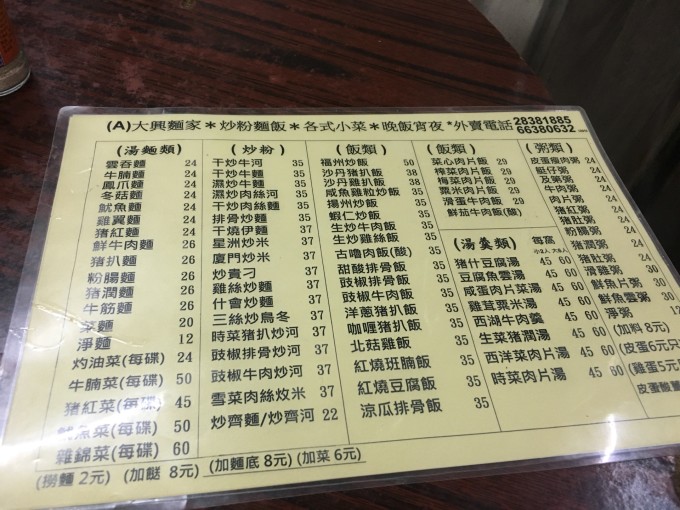 (A)大興麵家＊炒粉麵飯＊各式小菜＊晚飯宵夜*外賣電話 28381885
66380632
(湯麵類)
雲吞麵 24
牛腩麵 24
鳳爪麵 24
冬菇麵 24
魷魚麵 24
雞翼麵 24
豬紅麵 24
鮮牛肉麵 26
豬扒麵 26
粉腸麵 26
豬潤麵 26
牛筋麵 26
菜麵 20
淨麵 12
灼油菜(每碟) 24
牛腩菜(每碟) 50
豬紅菜(每碟) 45
魷魚菜(每碟) 50
雜錦菜(每碟) 60
(炒粉)
干炒牛河 35
干炒牛麵 35
濕炒牛河 35
濕炒肉絲河 35
干炒肉絲麵 35
排骨炒麵 35
干燒伊麵 35
星洲炒米 37
廈門炒米 37
炒貴刁 37
雞絲炒麵 37
什會炒麵 37
三絲炒烏冬 37
時菜豬扒炒河 37
豉椒排骨炒河 37
豉椒牛肉炒河 37
雪菜肉絲炆米 37
炒齋麵/炒齋河 22
(飯類)
福州炒飯 50
沙丹豬扒飯 38
沙丹雞扒飯 38
咸魚雞粒炒飯 38
揚州炒飯 35
蝦仁炒飯 35
生炒牛肉飯 35
生炒雞絲飯 35
古嚕肉飯(酸) 35
甜酸排骨飯 35
豉椒排骨飯 35
豉椒牛肉飯 35
洋蔥豬扒飯 35
咖喱豬扒飯 35
北菇雞飯 35
紅燒班腩飯 35
紅燒豆腐飯 35
涼瓜排骨飯 35
(飯類)
菜心肉片飯 29
榨菜肉片飯 29
梅菜肉片飯 29
粟米肉片飯 29
滑蛋牛肉飯 29
鮮茄牛肉飯(酸)
(湯羹類) 每窩
豬什豆腐湯 45 60
豆腐魚雲湯 45 60
咸蛋肉片菜湯 45 60
雞茸粟米湯 45 60
西湖牛肉羹 45 60
生菜豬潤湯 45 60
西洋菜肉片湯 45 60
時菜肉片湯 45 60
(粥類)
皮蛋瘦肉粥 24
艇仔粥 24
及第粥 24
牛肉粥 24
肉片粥 24
豬紅粥 24
豬肚粥 24
粉腸粥 24
豬潤粥 24
滑雞粥 24
鮮魚片粥 30
鮮魚雲粥 30
淨粥 12
(加料 8元)
(皮蛋6元只
(雞蛋5元
皮蛋酸薑
(撈麵 2元) (加餸 8元) (加麵底 8元) (加菜 6元)